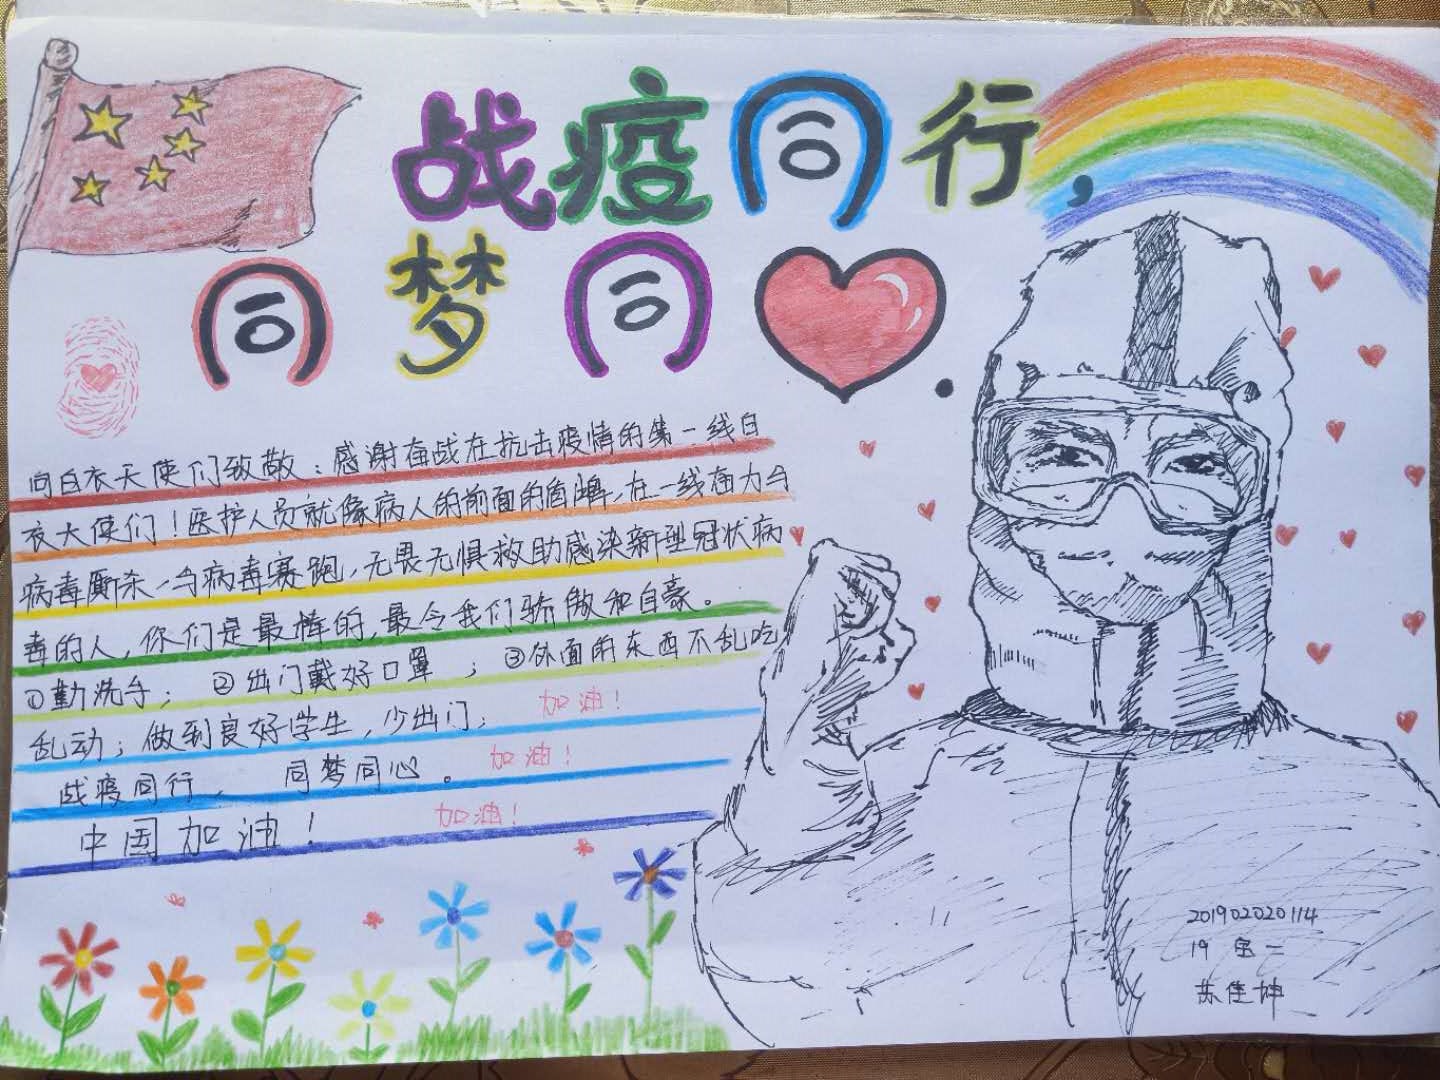 战疫同行,
同梦同❤.
向白衣天使们致敬：感谢奋战在抗击疫情的第一线白
衣天使们！医护人员就像病人的前面的盾牌,在一线奋力与
病毒厮杀,与病毒赛跑,无畏无惧救助感染新型冠状病
毒的人,你们是最棒的,最令我们骄傲和自豪。
①勤洗手； ②出门戴好口罩 ；③外面的东西不乱吃
乱动；做到良好学生,少出门； 加油！
战疫同行, 同梦同心。 加油！
中国加油！ 加油！
201902020114
19
苏佳坤